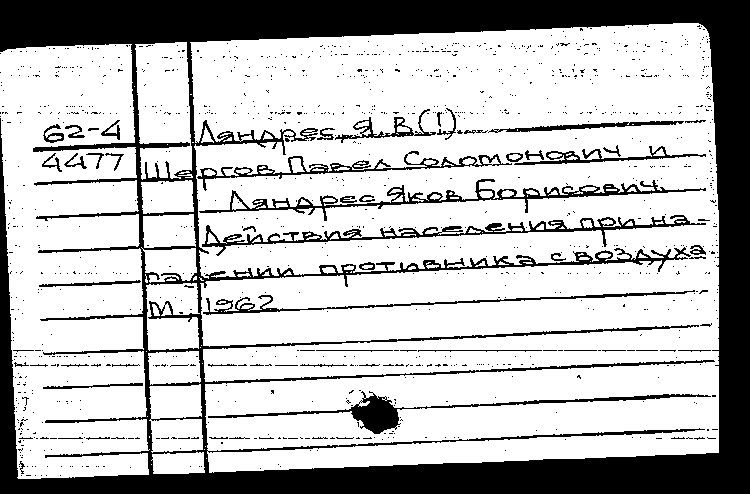 62-4 Ляндрес, Я. В. (!)
4477 Шергов, Павел Соломонович и
Ляндрес, Яков Борисович.
Действия населения при на-
падении противника с воздуха
М., 1962